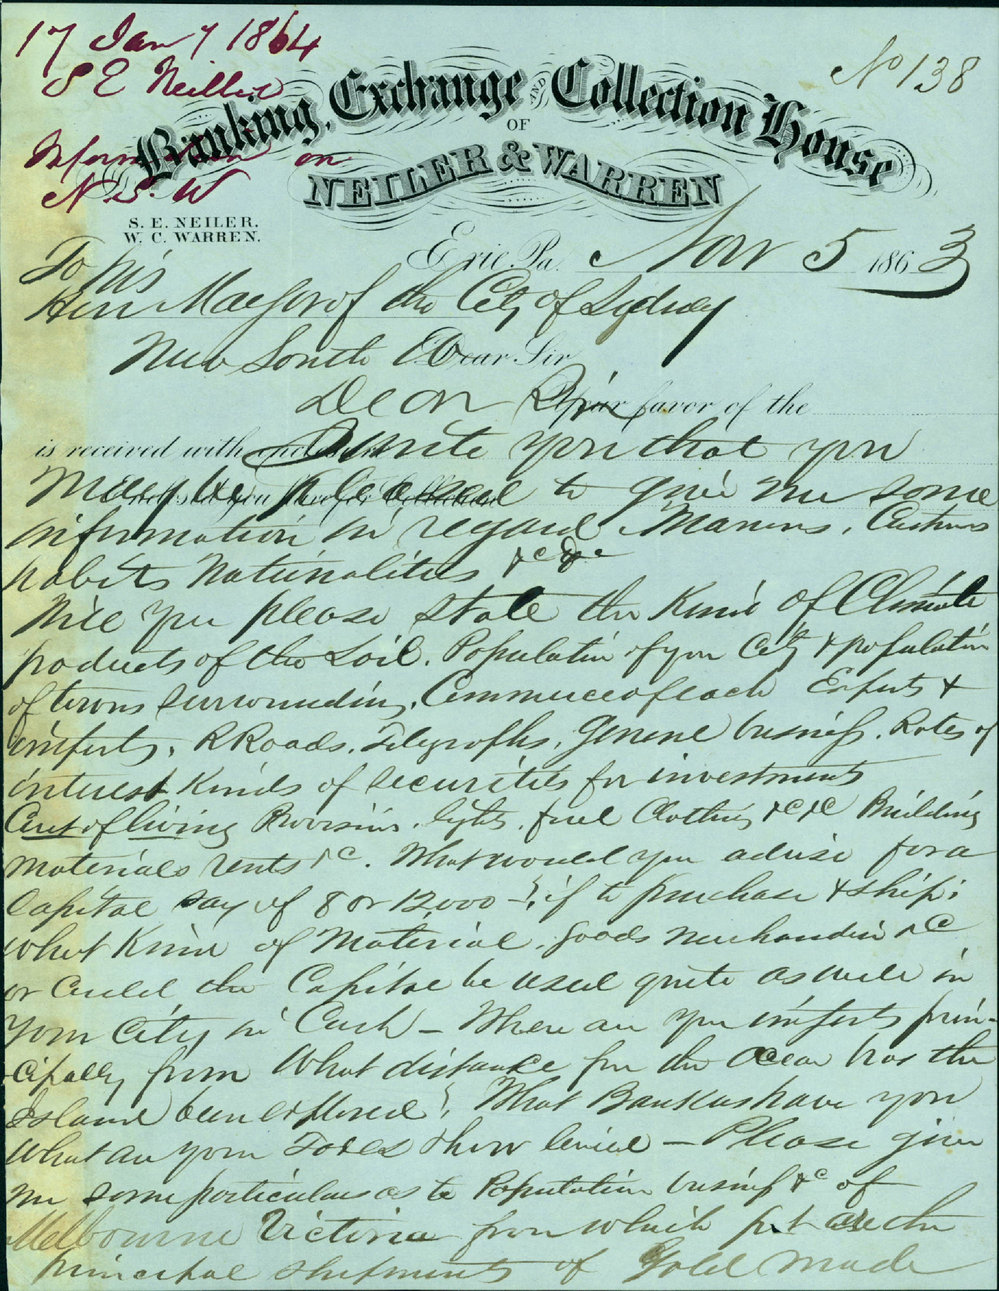 17 Jany 1864
S E Neiller
No 138
Information on
N S. W
Banking, Exchange AND Collection House
OF
NEILER & WARREN
S. E. NEILER.
W. C. WARREN.
Erie, Pa. Nov 5 1863
To his
Hon Mayor of the City of Sidney
New South W
Dear Sir
Dear Sir
Your favor of the
is received with enclosures
I write you that you
may be pleased to give me some
information in regard Manners, Customs
habits Nationalities &c &c
Will you please state the Kind of Climate
products of the Soil. Population of your City & population
of towns surrounding. Commerce of each Exports &
imports, RRoads, Telegraphs, General business. Rates of
interest Kinds of securities for investments
Cost of living Provision. lights. fuel Clothing &c &c Building
materials rents &c. What would you advise for a
Capital say of 8 or 12000 – if to purchase & ship;
what Kind of Material, goods merchandise &c
or could the Capital be used quite as well in
your City in Cash – Where are your imports prin-
cipally from What distance from the Ocean has the
Island been explored? What Banks have you
What are your Taxes & how levied – Please give
me some particulars as to Population business &c of
Melbourne Victoria from which port are the
principal shipments of Gold made